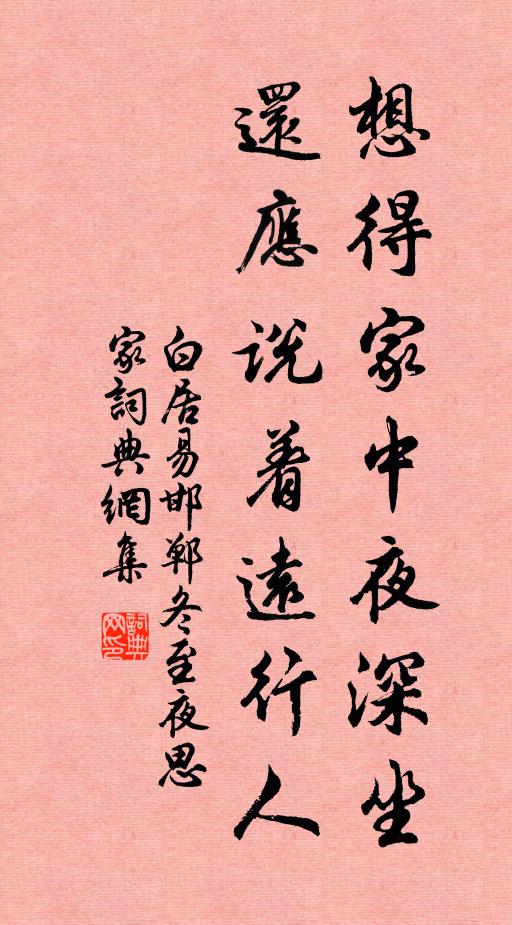 想得家中夜深坐
還應說着遠行人
白居易邯鄲冬至夜思
家詞典網集
詞典网印